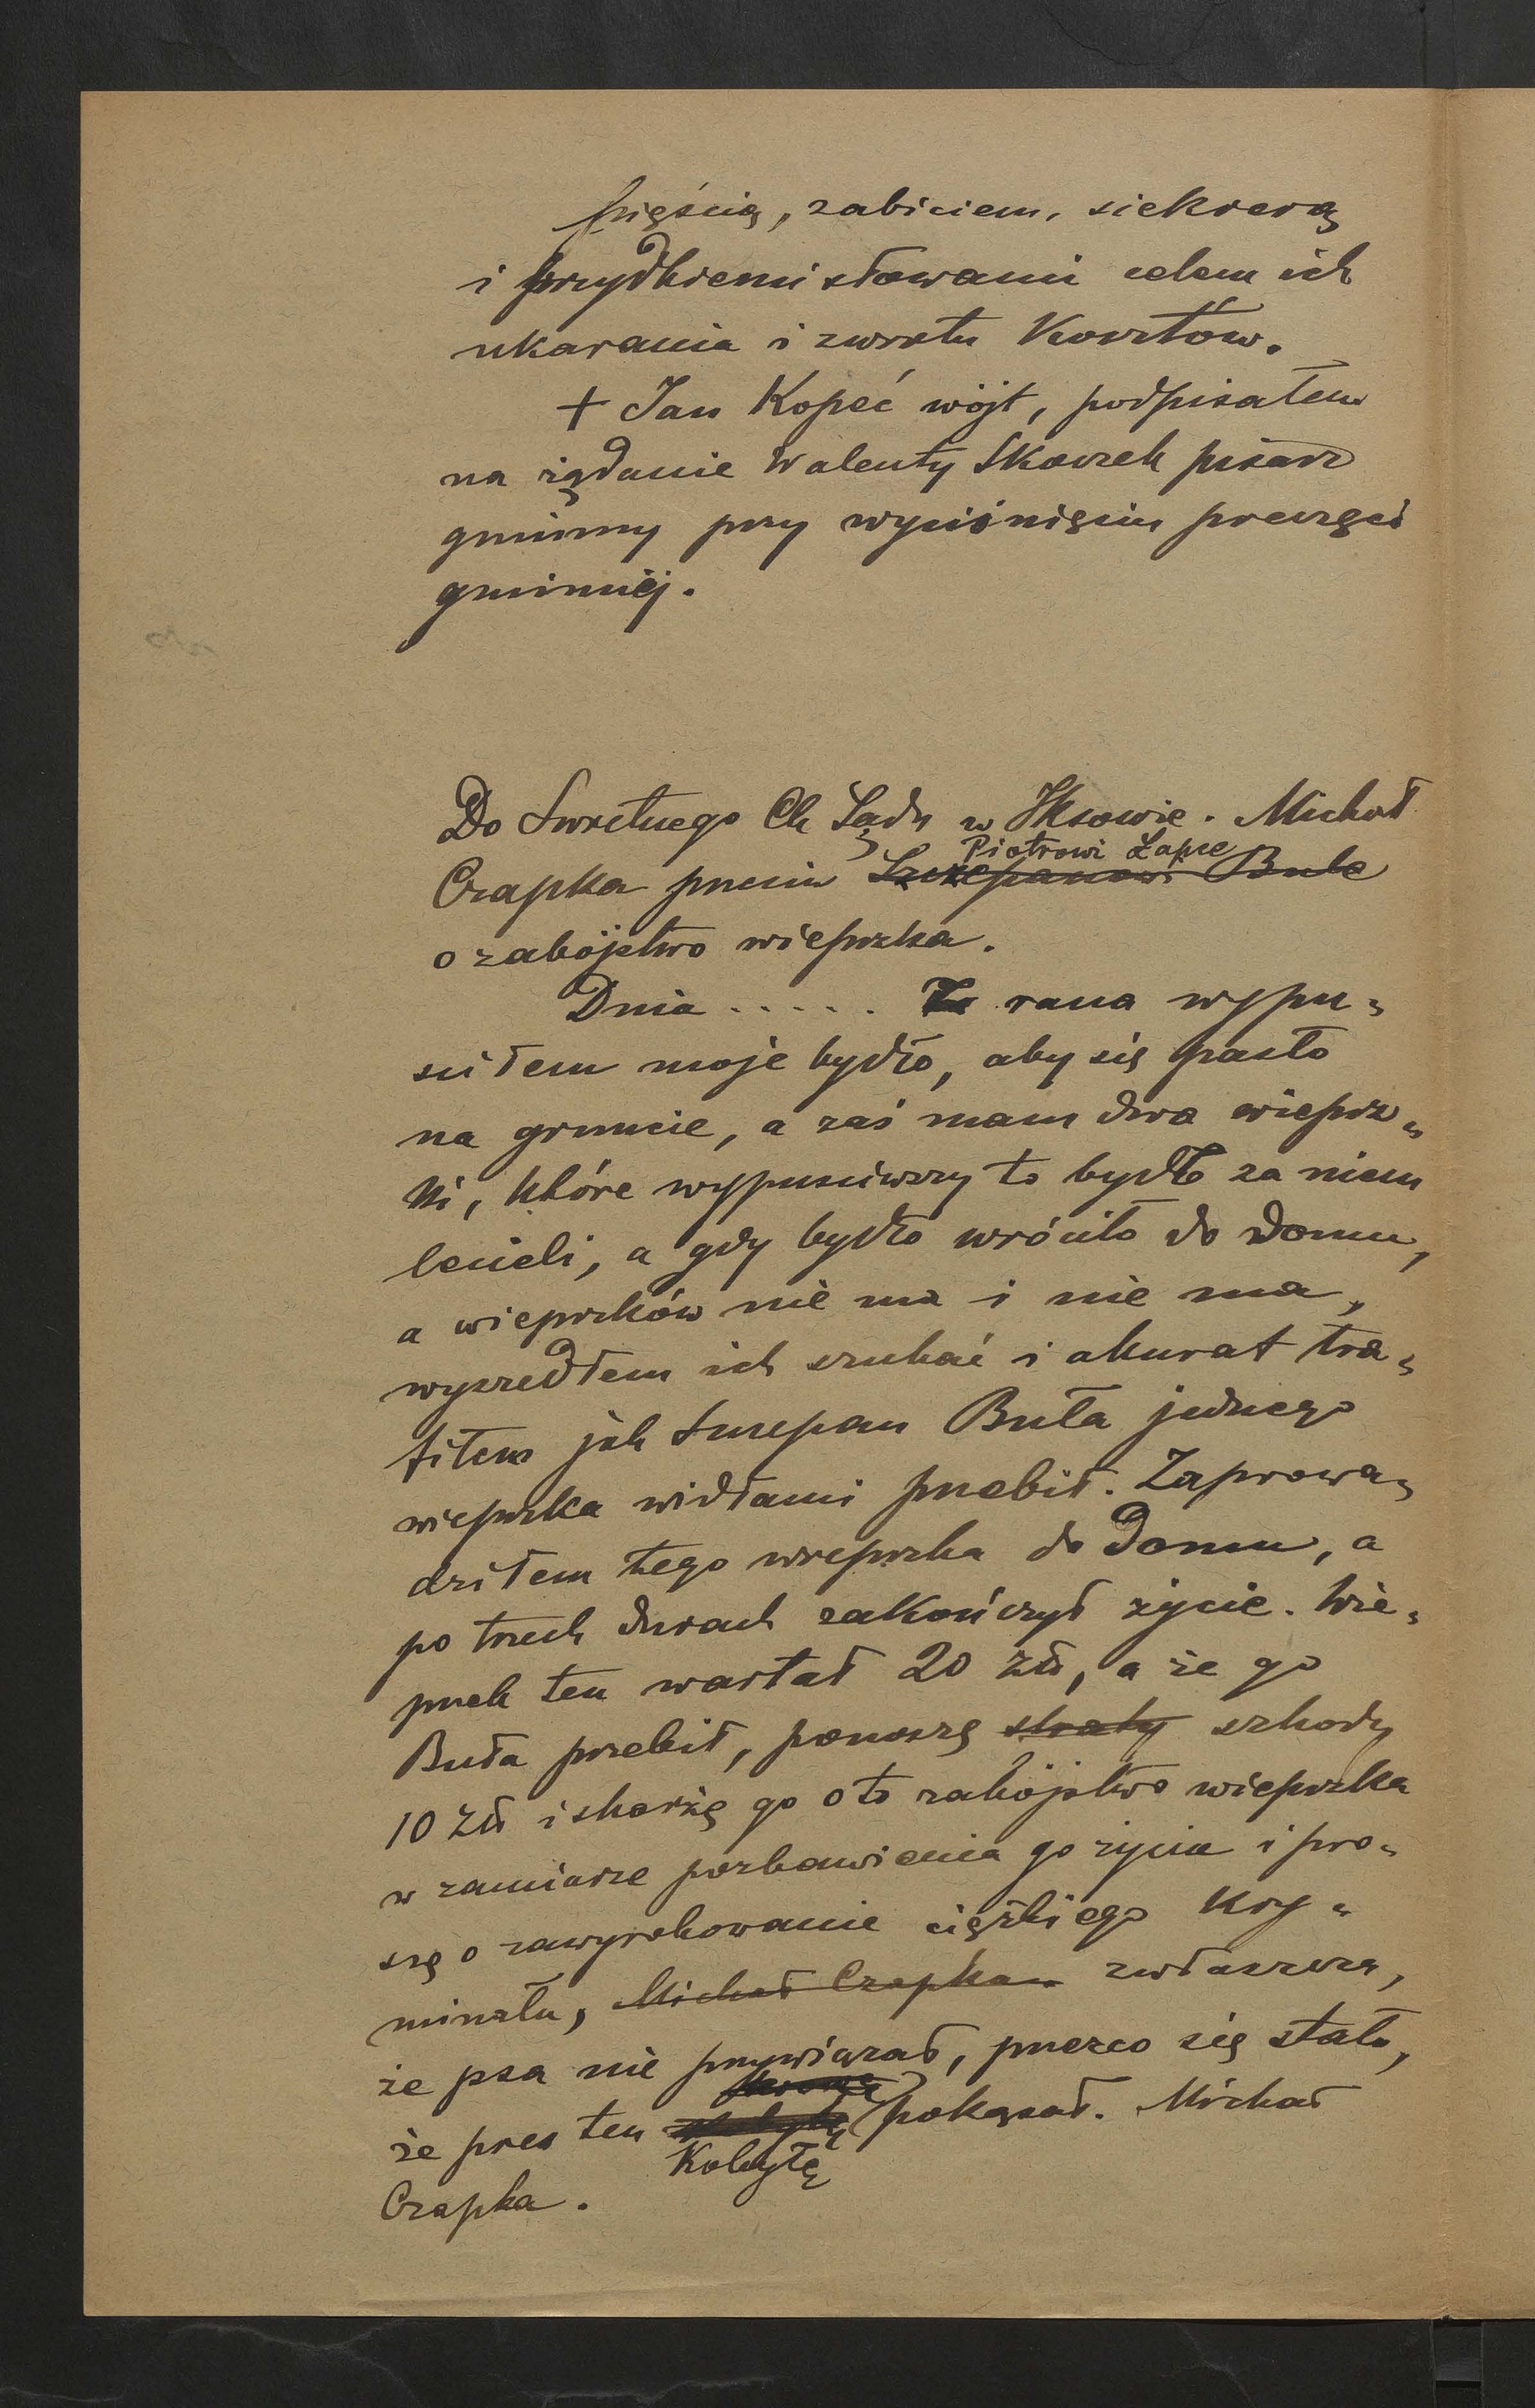 pięścią, zabiciem, siekierą
i brzydkiemi słowami celem ich
ukarania i zwrotu kosztów.
+ Jan Kopeć wójt, podpisałem
na żądanie Walenty Skorek pisarz
gminny przy wyciśnięciu pieczęci
gminnej.
Do Świetnego Ck Sądu w Iksowie. Michał
Piotrowi Łapie
Czapka przeciw Szczepanowi Bule
o zabójstwo wieprzka.
Dnia ..... rana wypu-
ściłem moje bydło, aby się pasło
na gruncie, a zaś mam dwa wieprz-
ki, które wypuściwszy to bydło za niem
lecieli, a gdy bydło wróciło do domu,
a wieprzków nie ma i nie ma,
wyszedłem ich szukać i akurat tra-
fiłem jak Szczepan Buła jednego
wieprzka widłami przebił. Zaprowa-
dziłem tego wieprzka do domu, a
po trzech dniach zakończył życie. Wie-
przek ten wartał 20 zła, a że go
Buła przebił, ponoszę straty szkody
10 zła i skarżę go o to zabójstwo wieprzka
w zamiarze pozbawienia go życia i pro-
szę o zawyrokowanie ciężkiego kry-
minału, Michał Czapka zwłaszcza,
że psa nie przywiązał, przezco się stało,
że pies ten pokąsał. Michał
Kobyłę
Czapka.